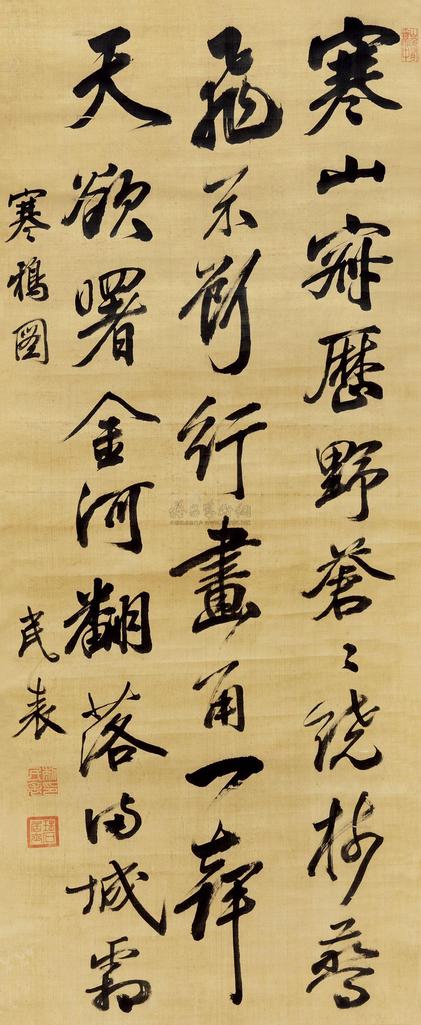 寒山寂歷野蒼〻繞樹驚
飛不斷行畫角一聲
天欲曙金河翻落滿城霜
寒鴉圖
民表